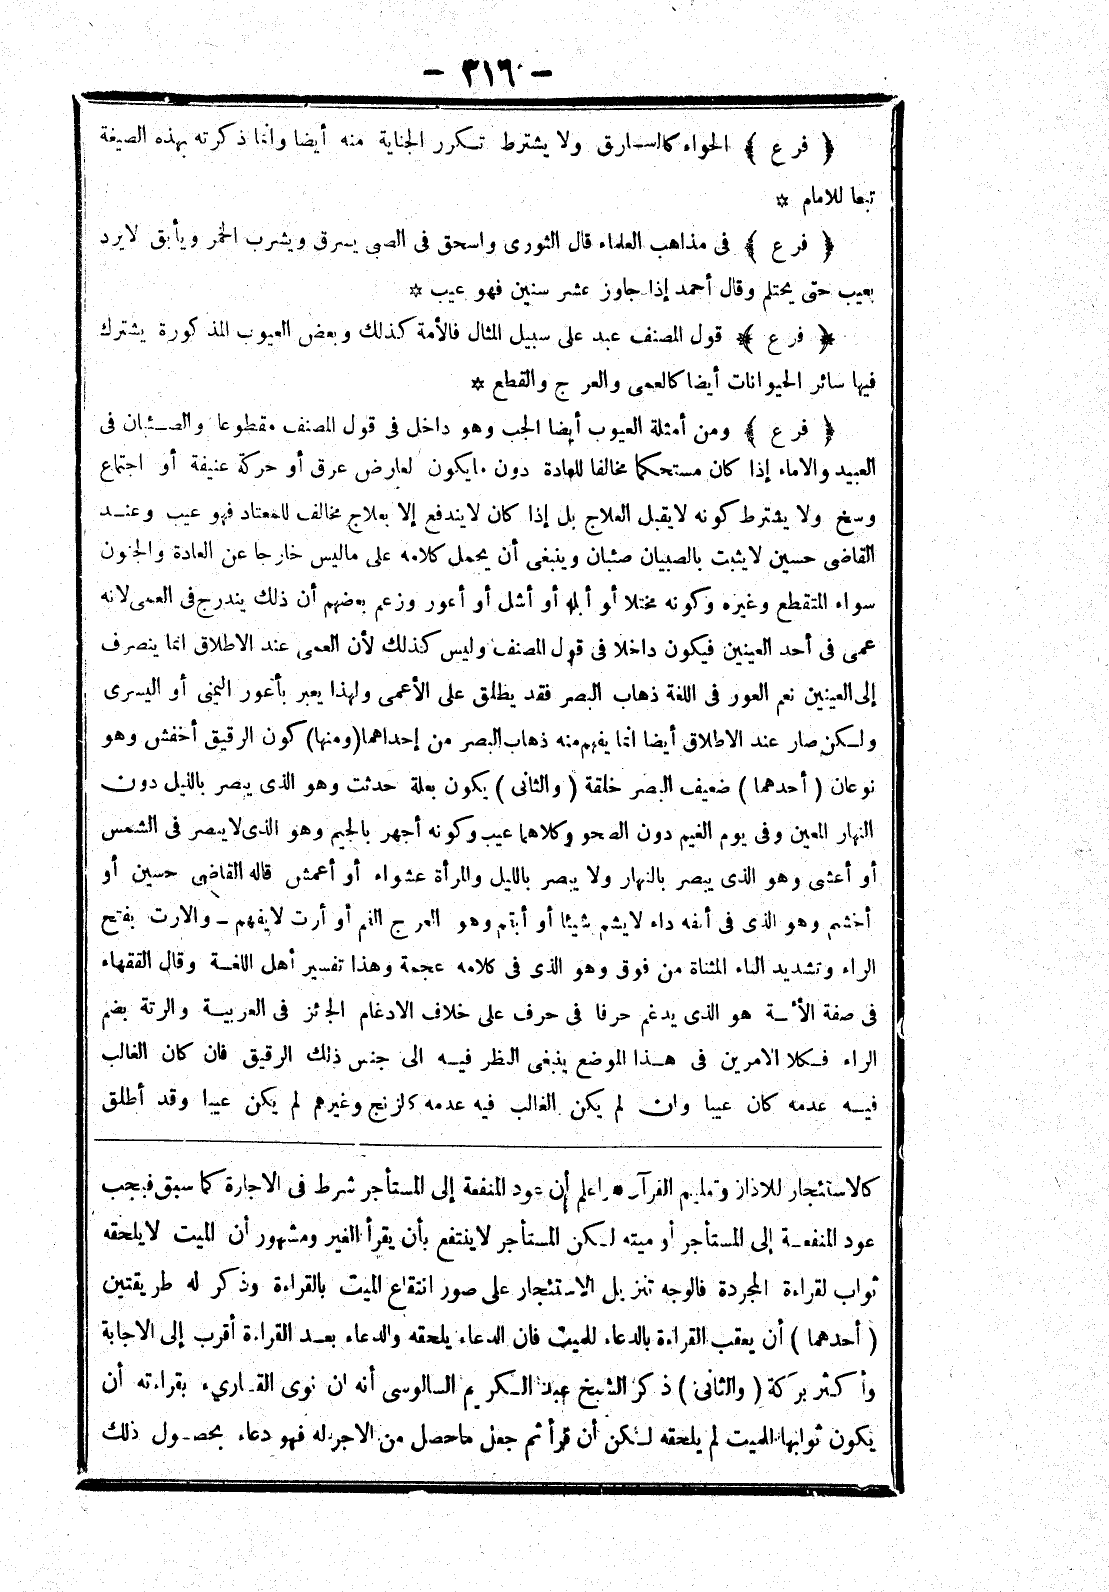 - ٣١٦ -
﴿ فرع ﴾ الحواء كالسارق ولا يشترط تكرر الجناية منه أيضا وانما ذكرته بهذه الصيغة
تبعا للامام *
﴿ فرع ﴾ فى مذاهب العلماء قال الثورى واسحق فى الصبى يسرق ويشرب الخمر ويأبق لايرد
بعيب حتى يحتلم وقال أحمد إذا جاوز عشر سنين فهو عيب *
﴿ فرع ﴾ قول المصنف عبد على سبيل المثال فالأمة كذلك وبعض العيوب المذكورة يشترك
فيها سائر الحيوانات أيضا كالعمى والعرج والقطع *
﴿ فرع ﴾ ومن أمثلة العيوب أيضا الجب وهو داخل فى قول المصنف مقطوعا والصئبان فى
العبيد والاماء إذا كان مستحكما مخالفا للعادة دون مايكون لعارض عرق أو حركة عنيفة أو اجتماع
وسخ ولا يشترط كونه لايقبل العلاج بل إذا كان لايندفع إلا بعلاج مخالف للمعتاد فهو عيب وعند
القاضى حسين لايثبت بالصبيان صئبان وينبغى أن يحمل كلامه على ماليس خارجا عن العادة والجنون
سواء المتقطع وغيره وكونه مختلا أو أبله أو أشل أو أعور وزعم بعضهم أن ذلك يندرج فى العمى لانه
عمى فى أحد العينين فيكون داخلا فى قول المصنف وليس كذلك لأن العمى عند الاطلاق انما ينصرف
إلى العينين نعم العور فى اللغة ذهاب البصر فقد يطلق على الأعمى ولهذا يعبر بأعور اليمنى أو اليسرى
ولكن صار عند الاطلاق أيضا انما يفهم منه ذهاب البصر من إحداهما (ومنها) كون الرقيق أخفش وهو
نوعان ( أحدهما ) ضعيف البصر خلقة ( والثانى ) يكون بعلة حدثت وهو الذى يبصر بالليل دون
النهار المعين وفى يوم الغيم دون الصحو وكلاهما عيب وكونه أجهر بالجيم وهو الذى لايبصر فى الشمس
أو أعشى وهو الذى يبصر بالنهار ولا يبصر بالليل والمرأة عشواء أو أعمش قاله القاضى حسين أو
أخشم وهو الذى فى أنفه داء لايشم شيئا أو أبثم وهو العرج الفم أو أرت لايفهم - والارت بفتح
الراء وتشديد التاء المثناة من فوق وهو الذى فى كلامه عجمة وهذا تفسير أهل اللغة وقال الفقهاء
فى صفة الأئمة هو الذى يدغم حرفا فى حرف على خلاف الادغام الجائز فى العربية والرتة بضم
الراء فكلا الامرين فى هذا الموضع ينبغى النظر فيه الى جنس ذلك الرقيق فان كان الغالب
فيه عدمه كان عيبا وان لم يكن الغالب فيه عدمه كالزنج وغيرهم لم يكن عيبا وقد أطلق
كالاستئجار للاذان وتعليم القرآن • واعلم أن عود المنفعة إلى المستأجر شرط فى الاجارة كما سبق فيجب
عود المنفعة إلى المستأجر أو ميته لكن المستأجر لاينتفع بأن يقرأ الغير ومشهور أن الميت لايلحقه
ثواب لقراءة المجردة فالوجه تنزيل الاستئجار على صور انتفاع الميت بالقراءة وذكر له طريقتين
( أحدهما ) أن يعقب القراءة بالدعاء للميت فان الدعاء يلحقه والدعاء بعد القراءة أقرب إلى الاجابة
وأكثر بركة ( والثانى ) ذكر الشيخ عبد الكريم السالوسى أنه ان نوى القارىء بقراءته أن
يكون ثوابها للميت لم يلحقه لكن أن قرأ ثم جعل ماحصل من الاجر له فهو دعاء بحصول ذلك